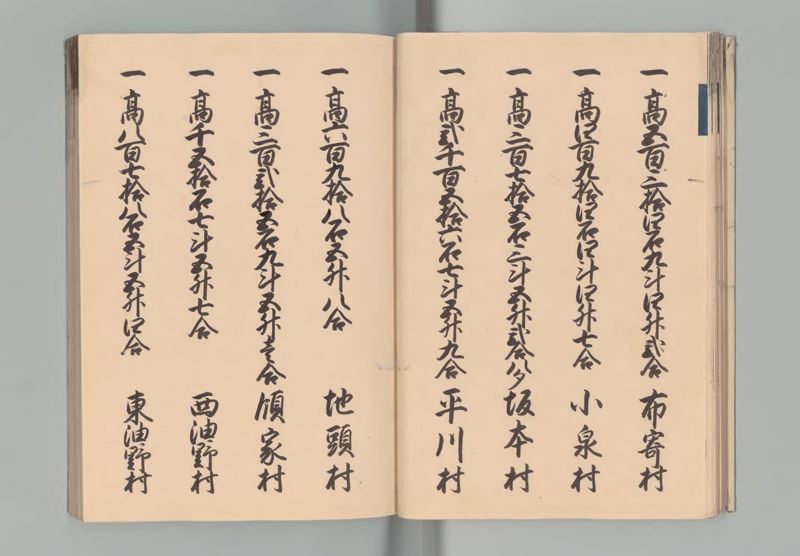 一 高五百三拾四石九斗四升弐合 布寄村
一 高四百九拾四石四斗四升七合 小泉村
一 高三百七拾五石三斗五升弐合八夕 坂本村
一 高弐千百五拾六石七斗五升九合 平川村
一 高六百九拾八石五升八合 地頭村
一 高三百弐拾五石九斗五升壱合 領家村
一 高千五拾石七斗五升七合 西油野村
一 高八百七拾八石五斗五升四合 東油野村